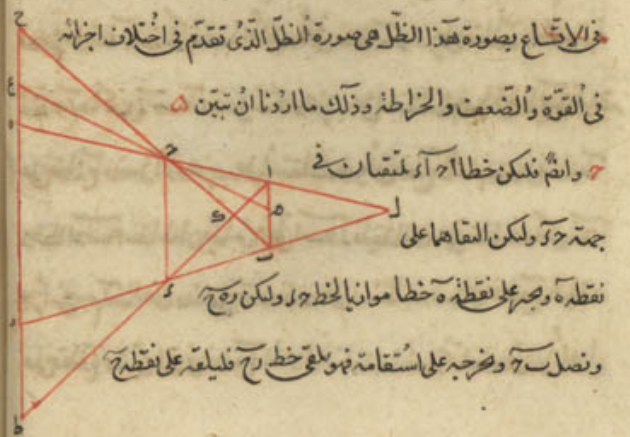 فى الاتساع بصورة هذا الظل هى صورة الظل الذى تقدم فى اختلاف اجزائه
فى القوة والضعف والخراطة وذلك ما اردنا ان نبين
وايضا فليكن خطا اح آء يلتقيان فى
جهة حء وليكن التقاهما على
نقطة ه ونجر على نقطة ه خطا موازيا لخط حء وليكن ره ح
ونصل ب ح ونخرجه على استقامة فهو يلقى خط رح فليلقه على نقطة ح